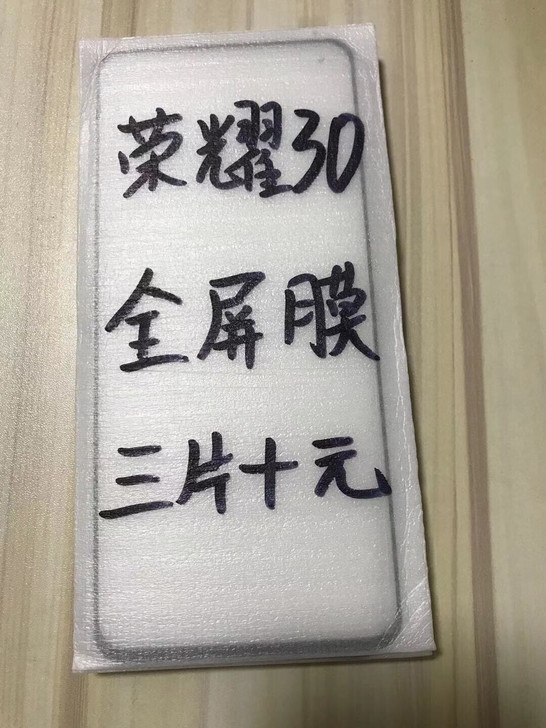 荣耀30
全屏膜
三片十元